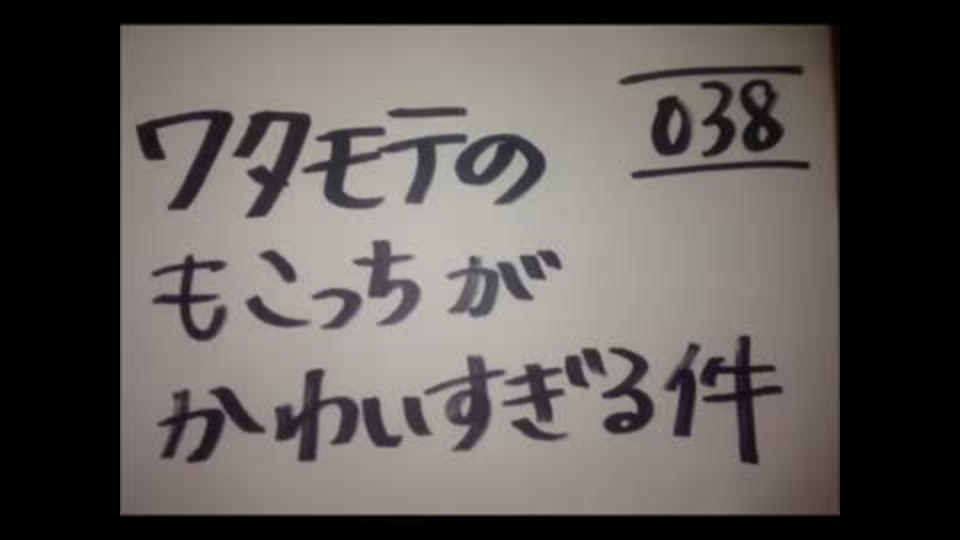 038
ワタモテの
もこっちが
かわいすぎる件